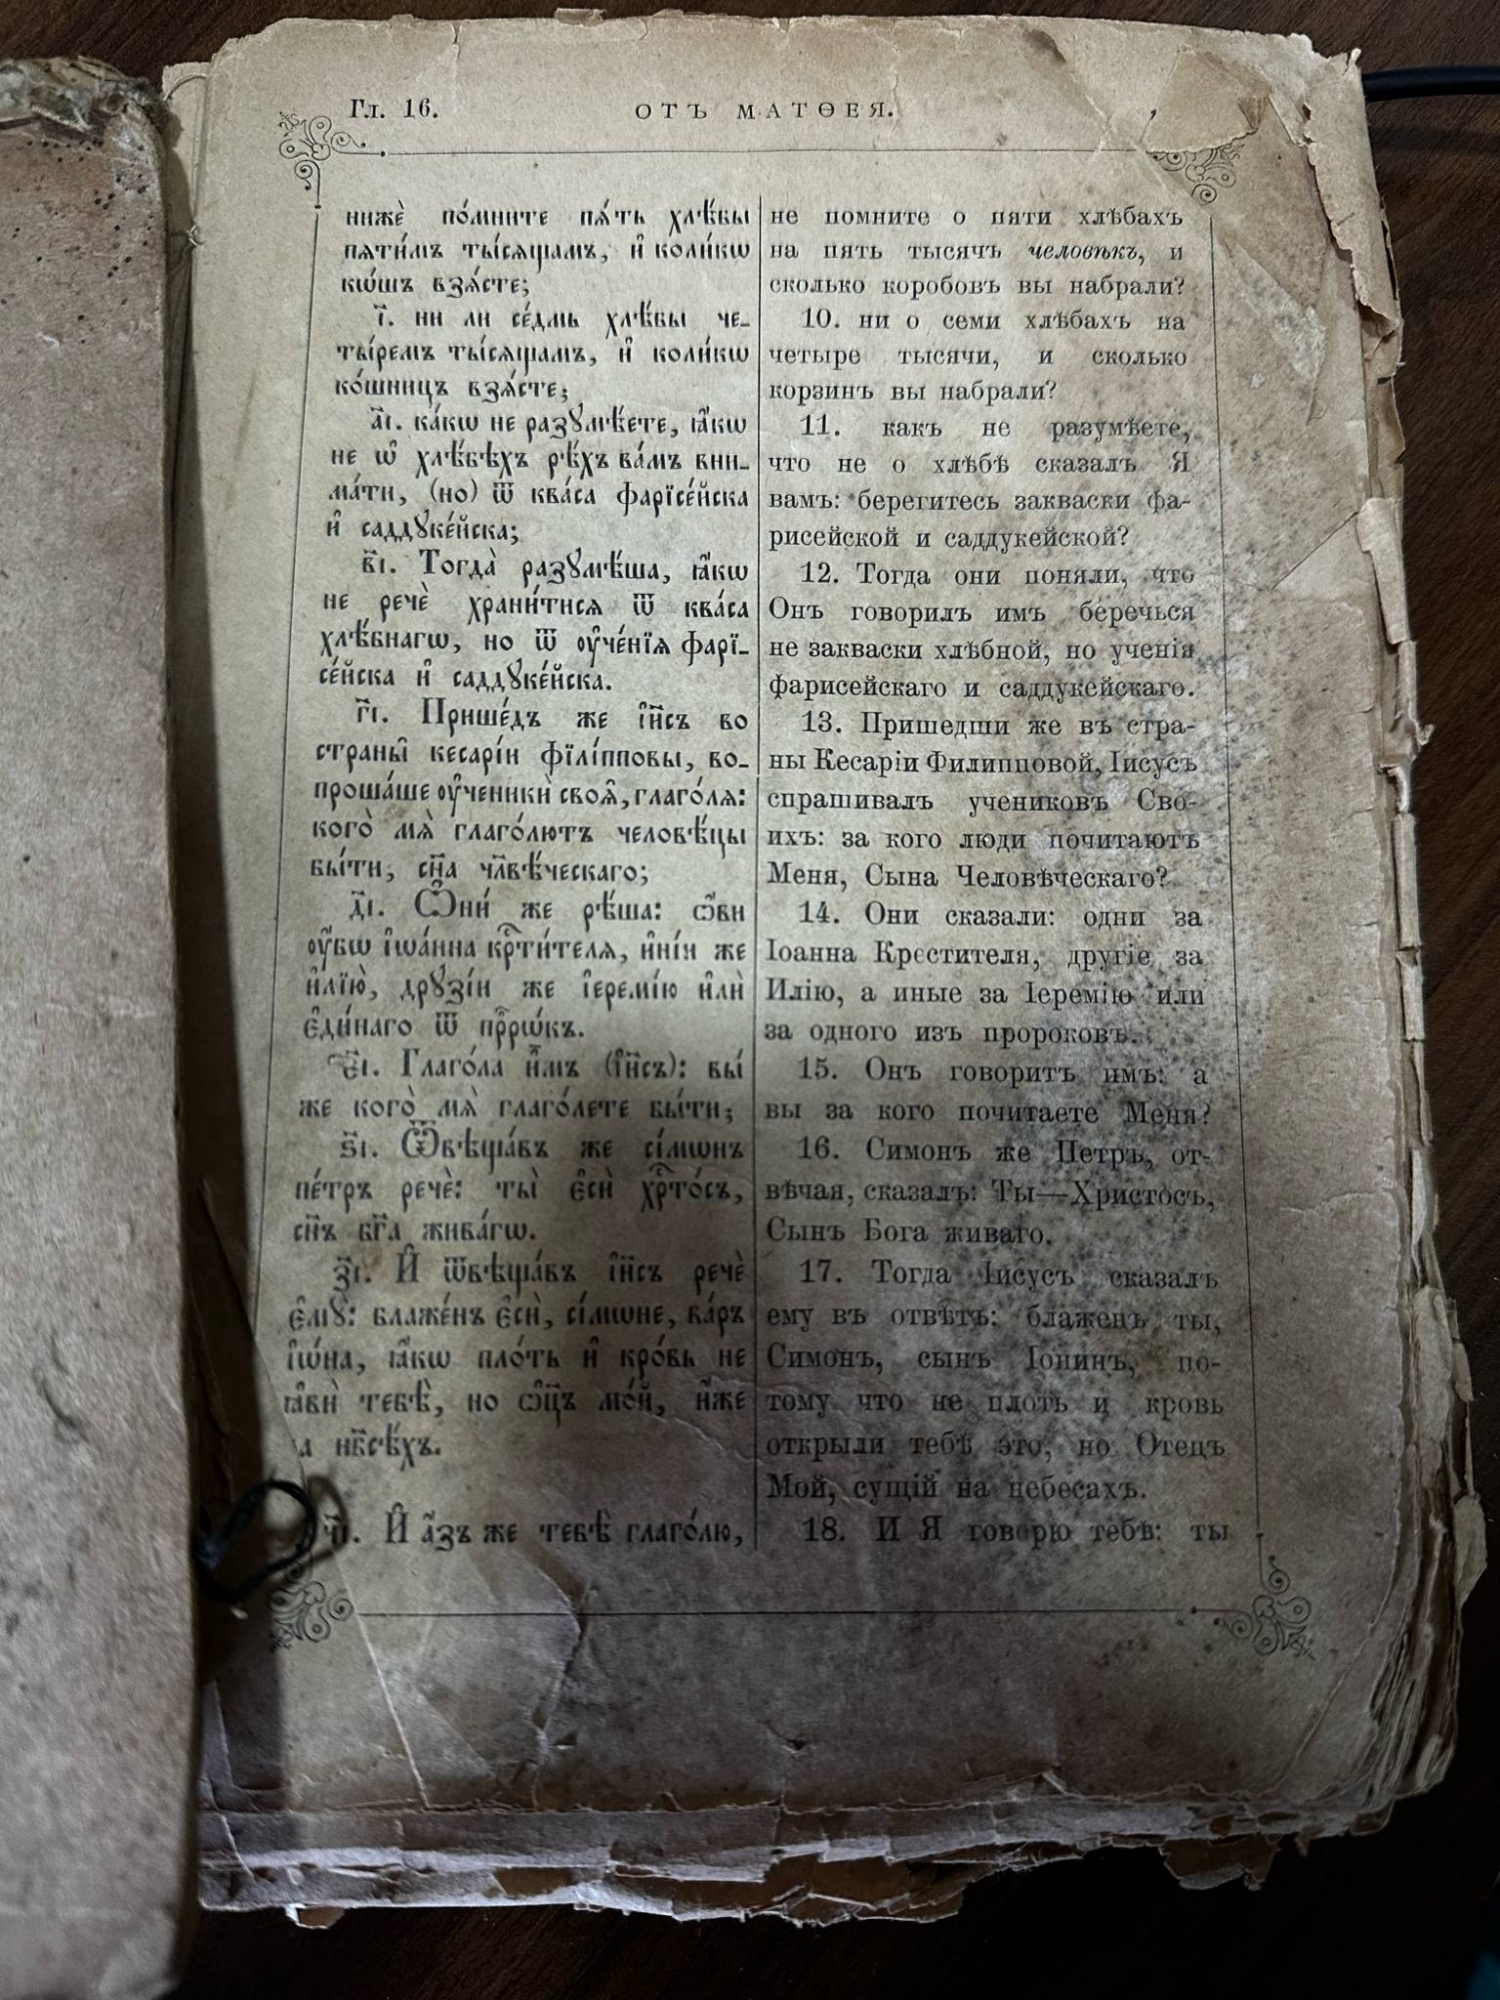 Гл. 16.
ОТЪ МАТѲЕЯ.
нижѐ по́мните пѧ́ть хлѣ́бы
пѧти́мъ ты́сѧщамъ, и҆ коли́кѡ
кѡ́шъ взѧ́сте;
і҃. ни ли се́дмь хлѣ́бы че-
ты́ремъ ты́сѧщамъ, и҆ коли́кѡ
ко́шницъ взѧ́сте;
а҃і. ка́кѡ не разꙋмѣ́ете, ꙗ҆́кѡ
не ѡ҆ хлѣ́бѣхъ рѣ́хъ ва́мъ вни-
ма́ти, (но) ѿ ква́са фарїсе́йска
и҆ саддꙋке́йска;
в҃і. Тогда̀ разꙋмѣ́ша, ꙗ҆́кѡ
не речѐ храни́тисѧ ѿ ква́са
хлѣ́бнагѡ, но ѿ ᲂу҆че́нїѧ фарї-
се́йска и҆ саддꙋке́йска.
г҃і. Прише́дъ же і҆и҃съ во
страны̑ кесарі́и фїлі́пповы, во-
проша́ше ᲂу҆ченикѝ своѧ̑, глаго́лѧ:
кого̀ мѧ̀ глаго́лютъ человѣ́цы
бы́ти, сн҃а чл҃вѣ́ческаго;
д҃і. Ѻ҆ни́ же рѣ́ша: ѻ҆́ви
ᲂу҆́бѡ і҆ѡа́нна крⷭ҇ти́телѧ, и҆ні́и же
и҆лїю̀, дрꙋзі́и же і҆еремі́ю и҆лѝ
є҆ди́наго ѿ прⷪ҇рѡ́къ.
є҃і. Глаго́ла и҆̀мъ (і҆и҃съ): вы́
же кого̀ мѧ̀ глаго́лете бы́ти;
ѕ҃і. Ѿвѣща́въ же сі́мѡнъ
пе́тръ речѐ: ты̀ є҆сѝ хрⷭ҇то́съ,
сн҃ъ бг҃а жива́гѡ.
з҃і. И҆ ѿвѣща́въ і҆и҃съ речѐ
є҆мꙋ̀: блаже́нъ є҆сѝ, сі́мѡне, ва́ръ
і҆ѡ́на, ꙗ҆́кѡ пло́ть и҆ кро́вь не
ꙗ҆вѝ тебѣ̀, но ѻ҆ц҃ъ мо́й, и҆́же
нб҃сѣ́хъ.
и҃і. И҆ а҆́зъ же тебѣ̀ глаго́лю,
не помните о пяти хлѣбахъ
на пять тысячъ человѣкъ, и
сколько коробовъ вы набрали?
10. ни о семи хлѣбахъ на
четыре тысячи, и сколько
корзинъ вы набрали?
11. какъ не разумѣете,
что не о хлѣбѣ сказалъ Я
вамъ: берегитесь закваски фа-
рисейской и саддукейской?
12. Тогда они поняли, что
Онъ говорилъ имъ беречься
не закваски хлѣбной, но ученія
фарисейскаго и саддукейскаго.
13. Пришедши же въ стра-
ны Кесаріи Филипповой, Іисусъ
спрашивалъ учениковъ Сво-
ихъ: за кого люди почитаютъ
Меня, Сына Человѣческаго?
14. Они сказали: одни за
Іоанна Крестителя, другіе за
Илію, а иные за Іеремію или
за одного изъ пророковъ.
15. Онъ говоритъ имъ: а
вы за кого почитаете Меня?
16. Симонъ же Петръ, от-
вѣчая, сказалъ: Ты—Христосъ,
Сынъ Бога живаго.
17. Тогда Іисусъ сказалъ
ему въ отвѣтъ: блаженъ ты,
Симонъ, сынъ Іонинъ, по-
тому что не плоть и кровь
открыли тебѣ это, но Отецъ
Мой, сущій на небесахъ.
18. И Я говорю тебѣ: ты